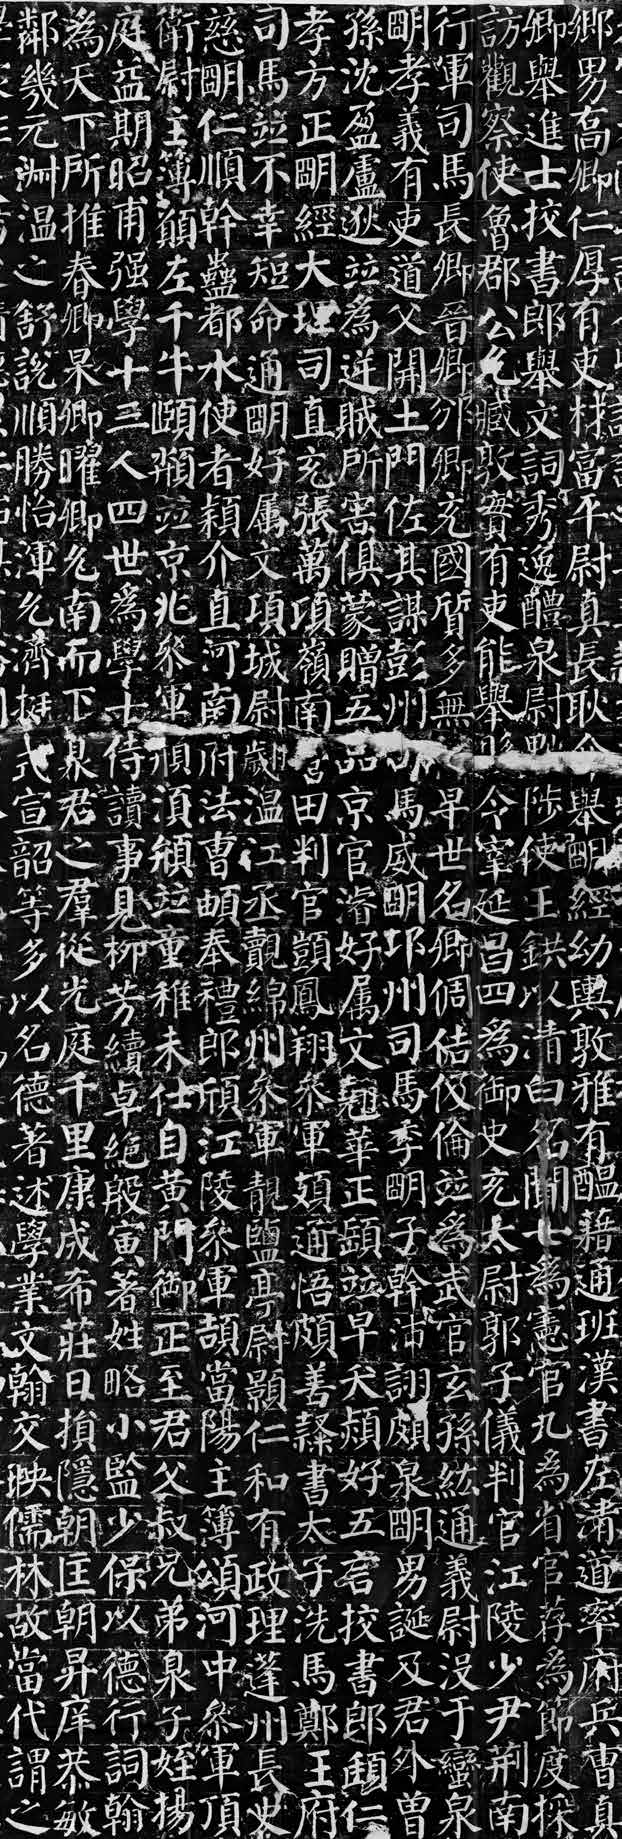 鄉男高卿仁厚有吏材富平尉真長耿介舉明經幼輿敦雅有醞藉通班漢書左清道率府兵曹真
卿舉進士挍書郎舉文詞秀逸醴泉尉黜陟使王鉷以清白名聞七為憲官九為省官荐為節度採
訪觀察使魯郡公允臧敦實有吏能舉縣令宰延昌四為御史充太尉郭子儀判官江陵少尹荊南
行軍司馬長卿晉卿邠卿充國質多無早世名卿倜佶伋倫並為武官玄孫紘通義尉沒于蠻泉
明孝義有吏道父開土門佐其謀彭州司馬威明邛州司馬季明子幹沛詡頗泉明男誕及君外曾
孫沈盈盧逖並為逆賊所害俱蒙贈五品京官濬好属文翹華正頤並早夭熲好五言挍書郎頲仁
孝方正明經大理司直充張萬頃嶺南營田判官顗鳳翔參軍頍通悟頗善隸書太子洗馬鄭王府
司馬並不幸短命通明好属文項城尉翽溫江丞覿綿州參軍靚鹽亭尉顥仁和有政理蓬州長史
慈明仁順幹蠱都水使者穎介直河南府法曹頔奉禮郎頎江陵參軍頡當陽主簿頌河中參軍頂
衛尉主簿願左千牛頤頵並京兆參軍頩須頯並童稚未仕自黃門御正至君父叔兄弟臮子姪揚
庭益期昭甫强學十三人四世為學士侍讀事見柳芳續卓絕殷寅著姓略小監少保以德行詞翰
為天下所推春卿杲卿曜卿允南而下臮君之羣從光庭千里康成希莊日損隱朝匡朝昇庠恭敏
鄰幾元淵温之舒說順勝怡渾允濟挺式宣韶等多以名德著述學業文翰交映儒林故當代謂之